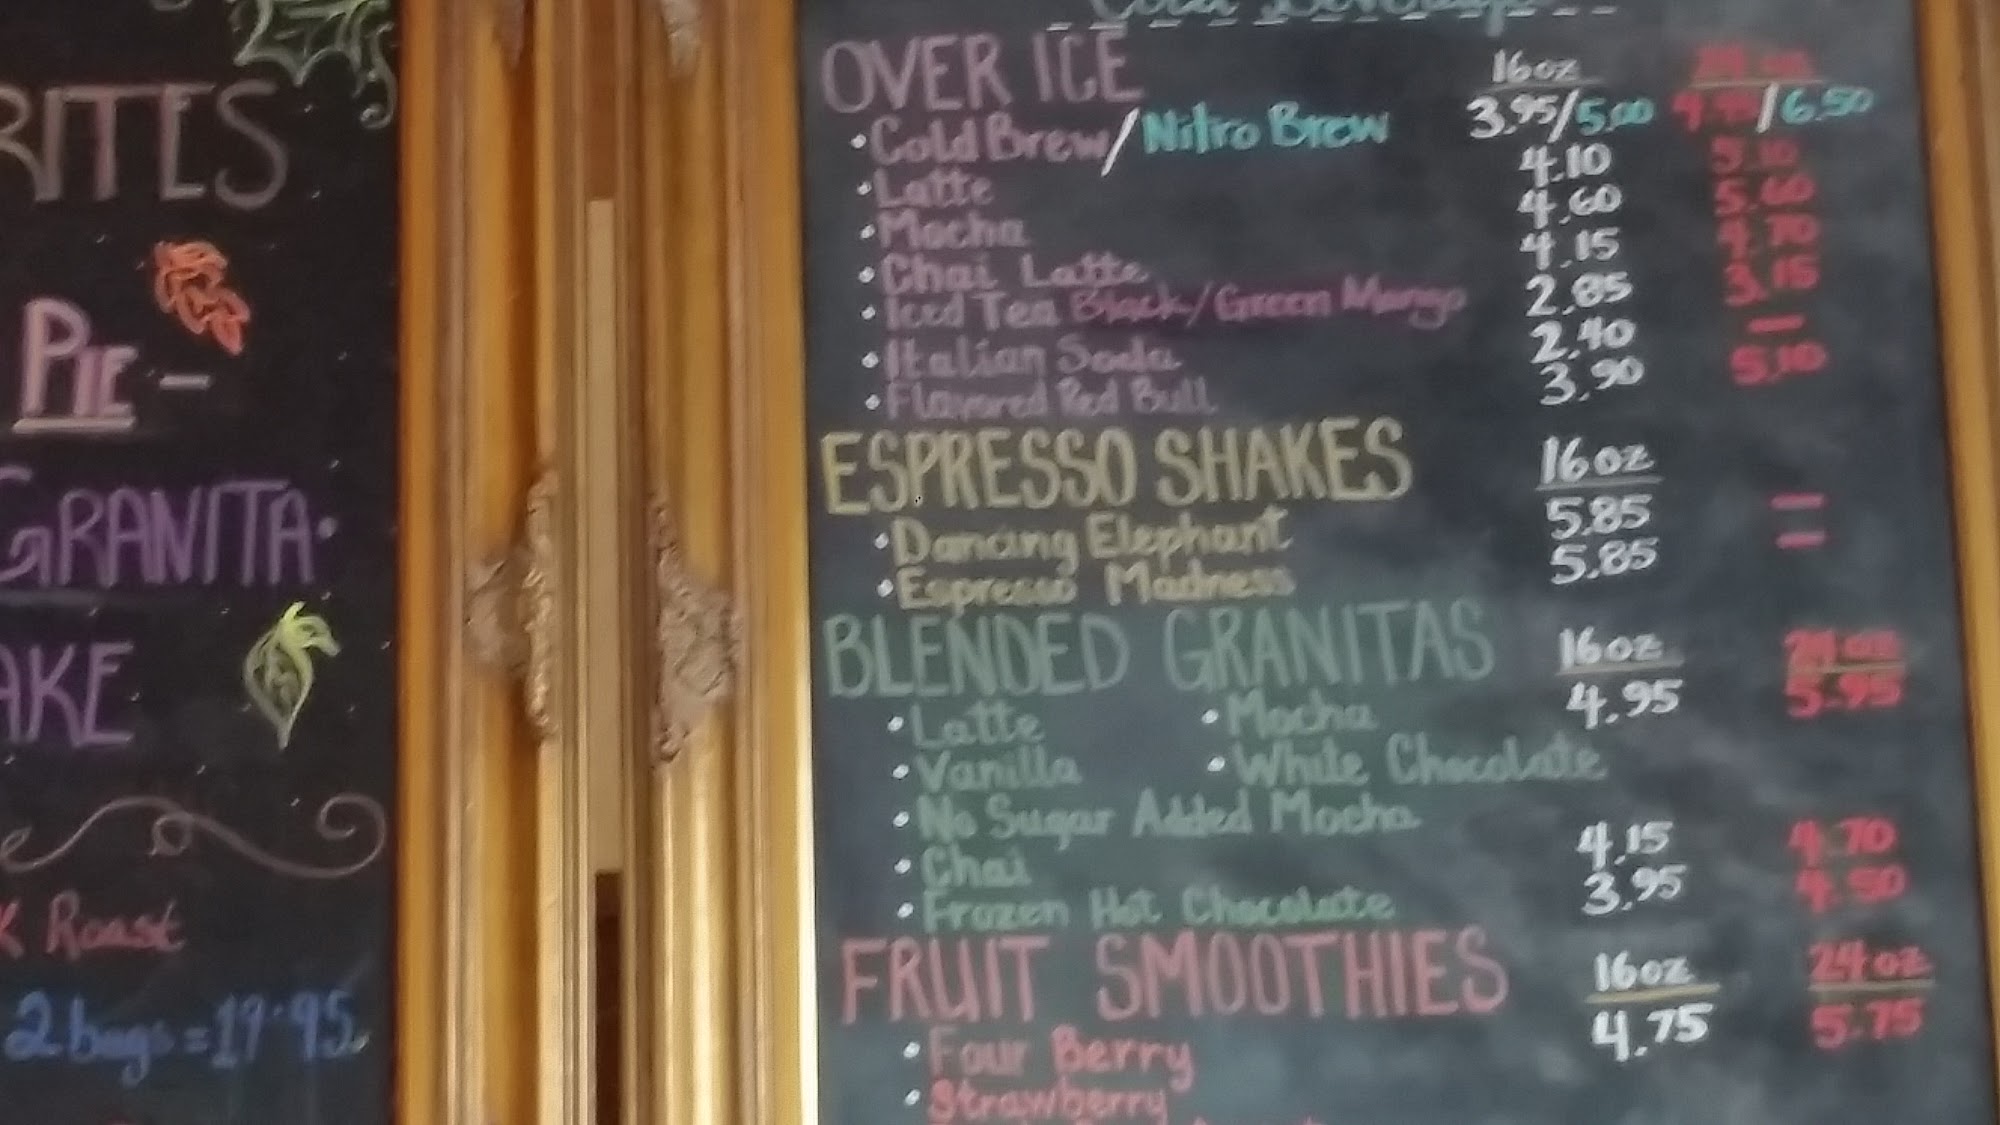 RITES
PIE -
GRANITA.
AKE
K Roast
2 bags = 17.95
Cold Beverages
OVER ICE 16oz 24 oz
• Cold Brew / Nitro Brew 3.95/5.00 4.95/6.50
• Latte 4.10 5.10
• Mocha 4.60 5.60
• Chai Latte 4.15 4.70
• Iced Tea Black/Green Mango 2.85 3.15
• Italian Soda 2.40 —
• Flavored Red Bull 3.90 5.10
ESPRESSO SHAKES 16oz
• Dancing Elephant 5.85 —
• Espresso Madness 5.85 —
BLENDED GRANITAS 16oz 24 oz
• Latte • Mocha 4.95 5.95
• Vanilla • White Chocolate
• No Sugar Added Mocha
• Chai 4.15 4.70
• Frozen Hot Chocolate 3.95 4.50
FRUIT SMOOTHIES 16oz 24 oz
• Four Berry 4.75 5.75
• Strawberry